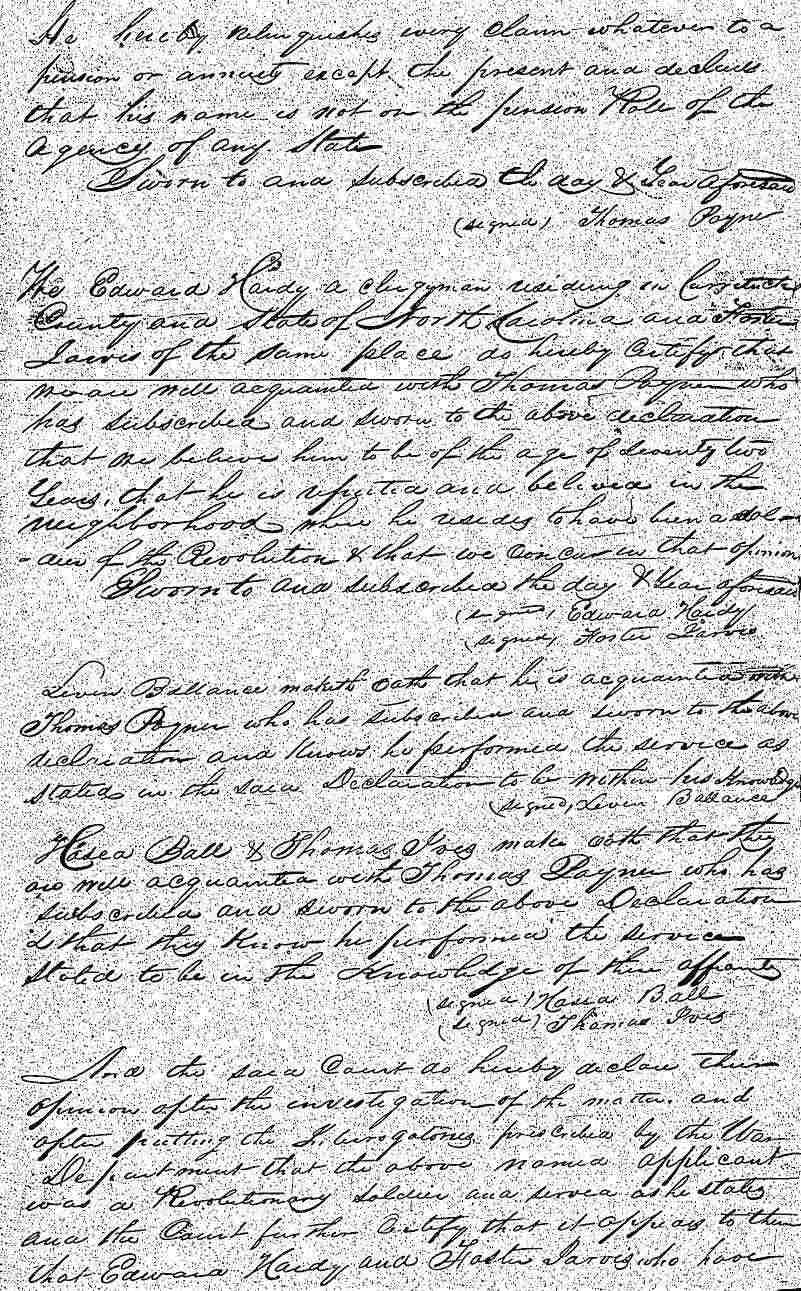 He hereby relinquishes every claim whatever to a
pension or annuity except the present and declares
that his name is not on the pension Roll of the
agency of any State
Sworn to and subscribed the day & Year aforesaid
(signed) Thomas Payne
We Edward Hardy a clergyman residing in Currituck
County and State of North Carolina and Foster
Jarvis of the same place do hereby Certify that
we are well acquainted with Thomas Payne who
has subscribed and sworn to the above declaration
that we believe him to be of the age of Seventy two
Years, that he is reputed and believed in the
neighborhood where he resides to have been a sol-
-dier of the Revolution & that we concur in that opinion
Sworn to and subscribed the day & Year aforesaid
(signed) Edward Hardy
(signed) Foster Jarvis
Leven Ballance maketh oath that he is acquainted with
Thomas Payner who has subscribed and sworn to the above
declaration and Knows he performed the service as
stated in the said Declaration to be within his Knowledge
(signed, Leven Ballance
Hasea Ball & Thomas Ives make oath that they
are well acquainted with Thomas Payner who has
subscribed and sworn to the above Declaration
& that they Know he performed the service
stated to be in the Knowledge of these affiants
(signed) Hasea Ball
(signed) Thomas Ives
And the said Court do hereby declare their
opinion after the investigation of the matter. and
after putting the Interogatories prescribed by the War
Department that the above named applicant
was a Revolutionary soldier and served as he states
and the Court further Certify that it appears to them
that Edward Hardy and Foster Jarvis who have